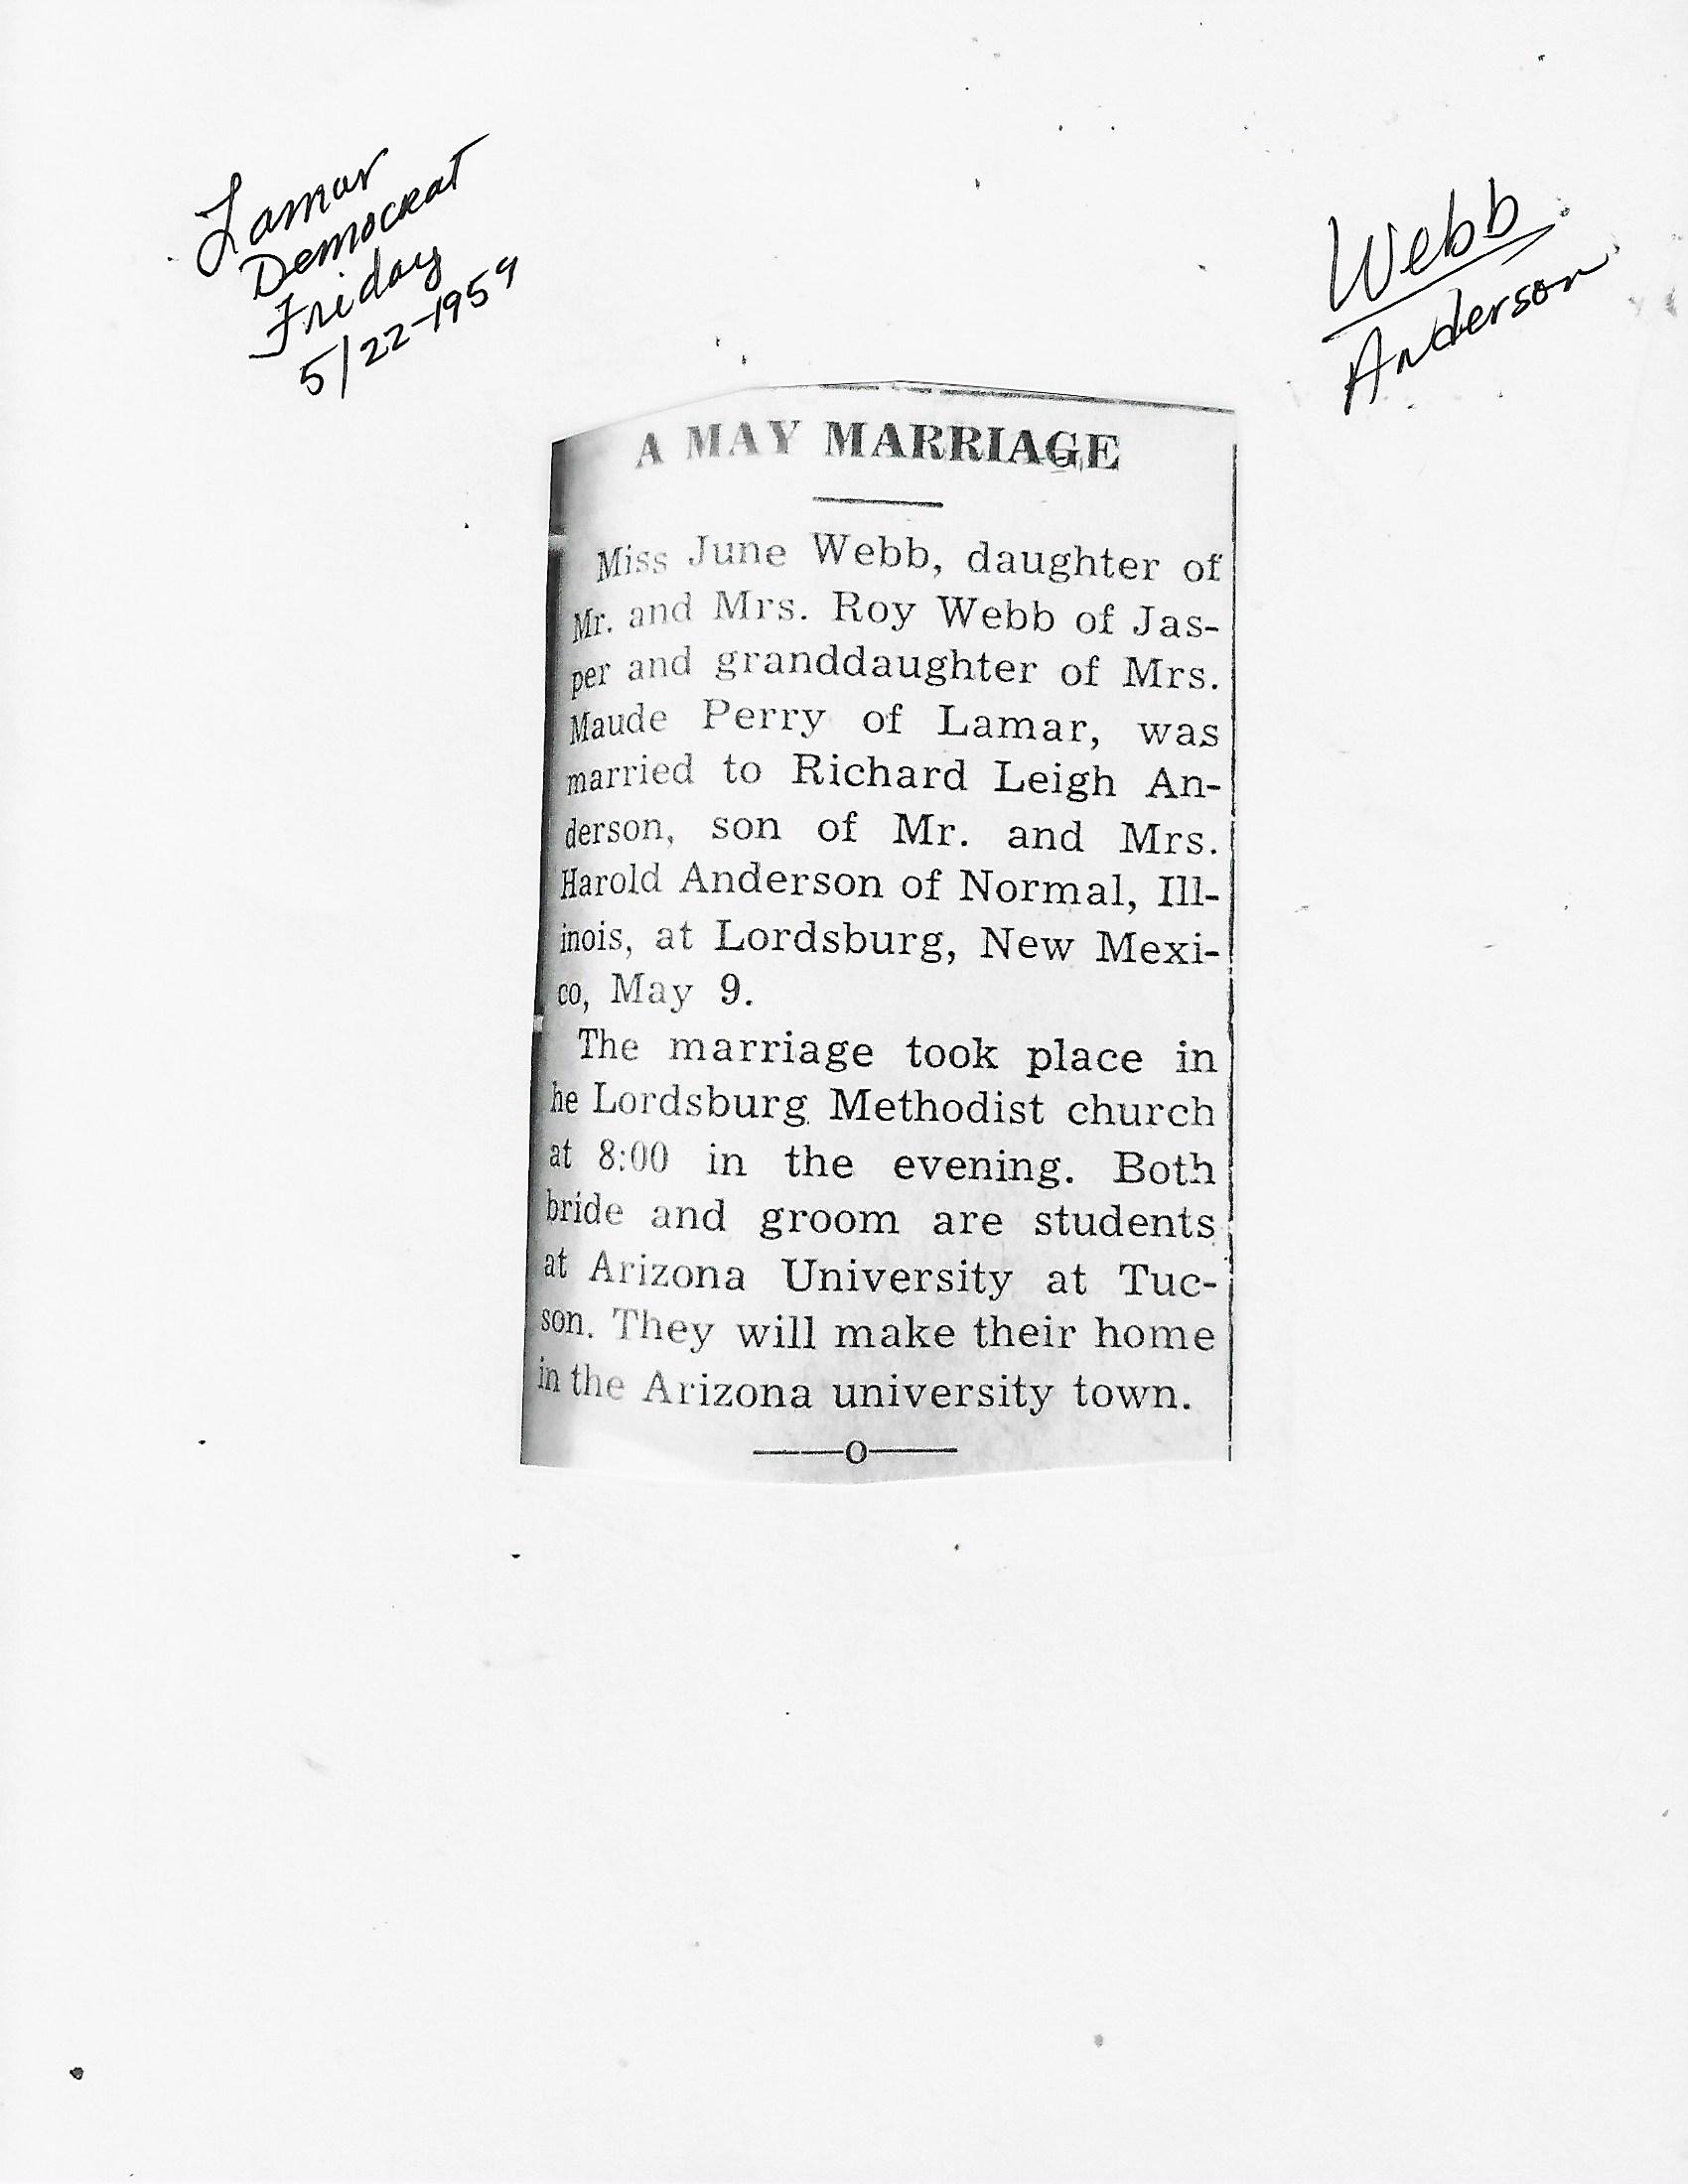 Lamar
Democrat
Friday
5/22-1959
Webb
Anderson
A MAY MARRIAGE
Miss June Webb, daughter of
Mr. and Mrs. Roy Webb of Jas-
per and granddaughter of Mrs.
Maude Perry of Lamar, was
married to Richard Leigh An-
derson, son of Mr. and Mrs.
Harold Anderson of Normal, Ill-
inois, at Lordsburg, New Mexi-
co, May 9.
The marriage took place in
he Lordsburg Methodist church
at 8:00 in the evening. Both
bride and groom are students
at Arizona University at Tuc-
son. They will make their home
in the Arizona university town.
——o——